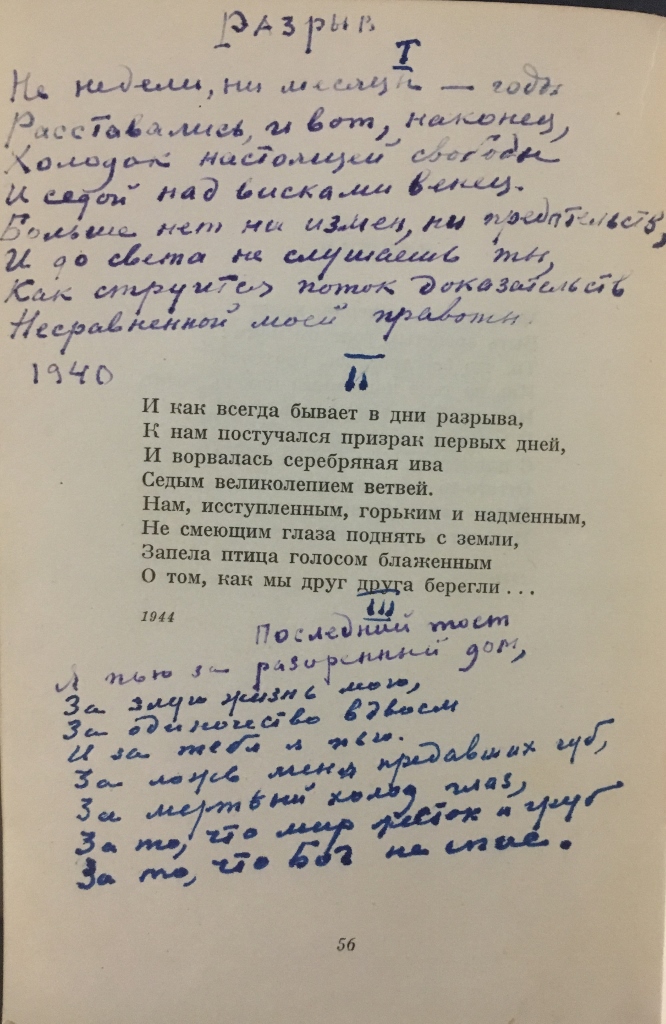 Разрыв
I
Не недели, ни месяцы — годы
Расставались, и вот, наконец,
Холодок настоящей свободы
И седой над висками венец.
Больше нет ни измен, ни предательств,
И до света не слушаешь ты,
Как струится поток доказательств
Несравненной моей правоты.
1940
II
И как всегда бывает в дни разрыва,
К нам постучался призрак первых дней,
И ворвалась серебряная ива
Седым великолепием ветвей.
Нам, исступленным, горьким и надменным,
Не смеющим глаза поднять с земли,
Запела птица голосом блаженным
О том, как мы друг друга берегли...
III
1944
Последний тост
Я пью за разоренный дом,
За злую жизнь мою,
За одиночество вдвоем
И за тебя я пью.
За ложь меня предавших губ,
За мертвый холод глаз,
За то, что мир жесток и груб
За то, что Бог не спас.
56